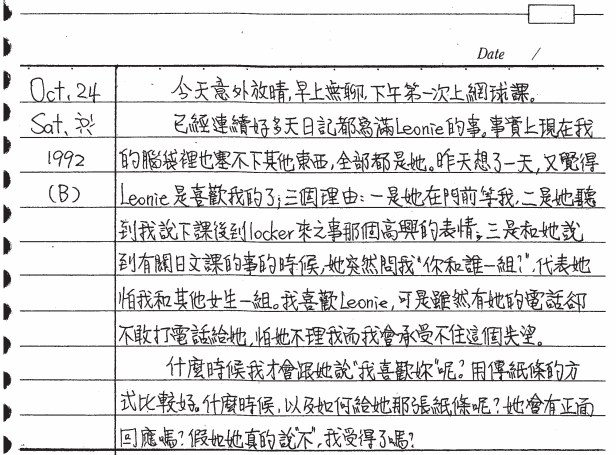 Date /
Oct, 24 今天意外放晴,早上無聊,下午第一次上網球課。
Sat, 已經連續好多天日記都寫滿Leonie的事。事實上現在我
1992 的腦袋裡也塞不下其他東西,全部都是她。昨天想了一天,又覺得
(B) Leonie是喜歡我的了;三個理由:一是她在門前等我,二是她聽
到我說下課後到locker來之事那個高興的表情;三是和她說
到有關日文課的事的時候,她突然問我"你和誰一組?",代表她
怕我和其他女生一組。我喜歡Leonie,可是雖然有她的電話卻
不敢打電話給她,怕她不理我而我會承受不住這個失望。
什麼時候我才會跟她說"我喜歡妳"呢?用傳紙條的方
式比較好。什麼時候,以及如何給她那張紙條呢?她會有正面
回應嗎?假如她真的說"不",我受得了嗎?